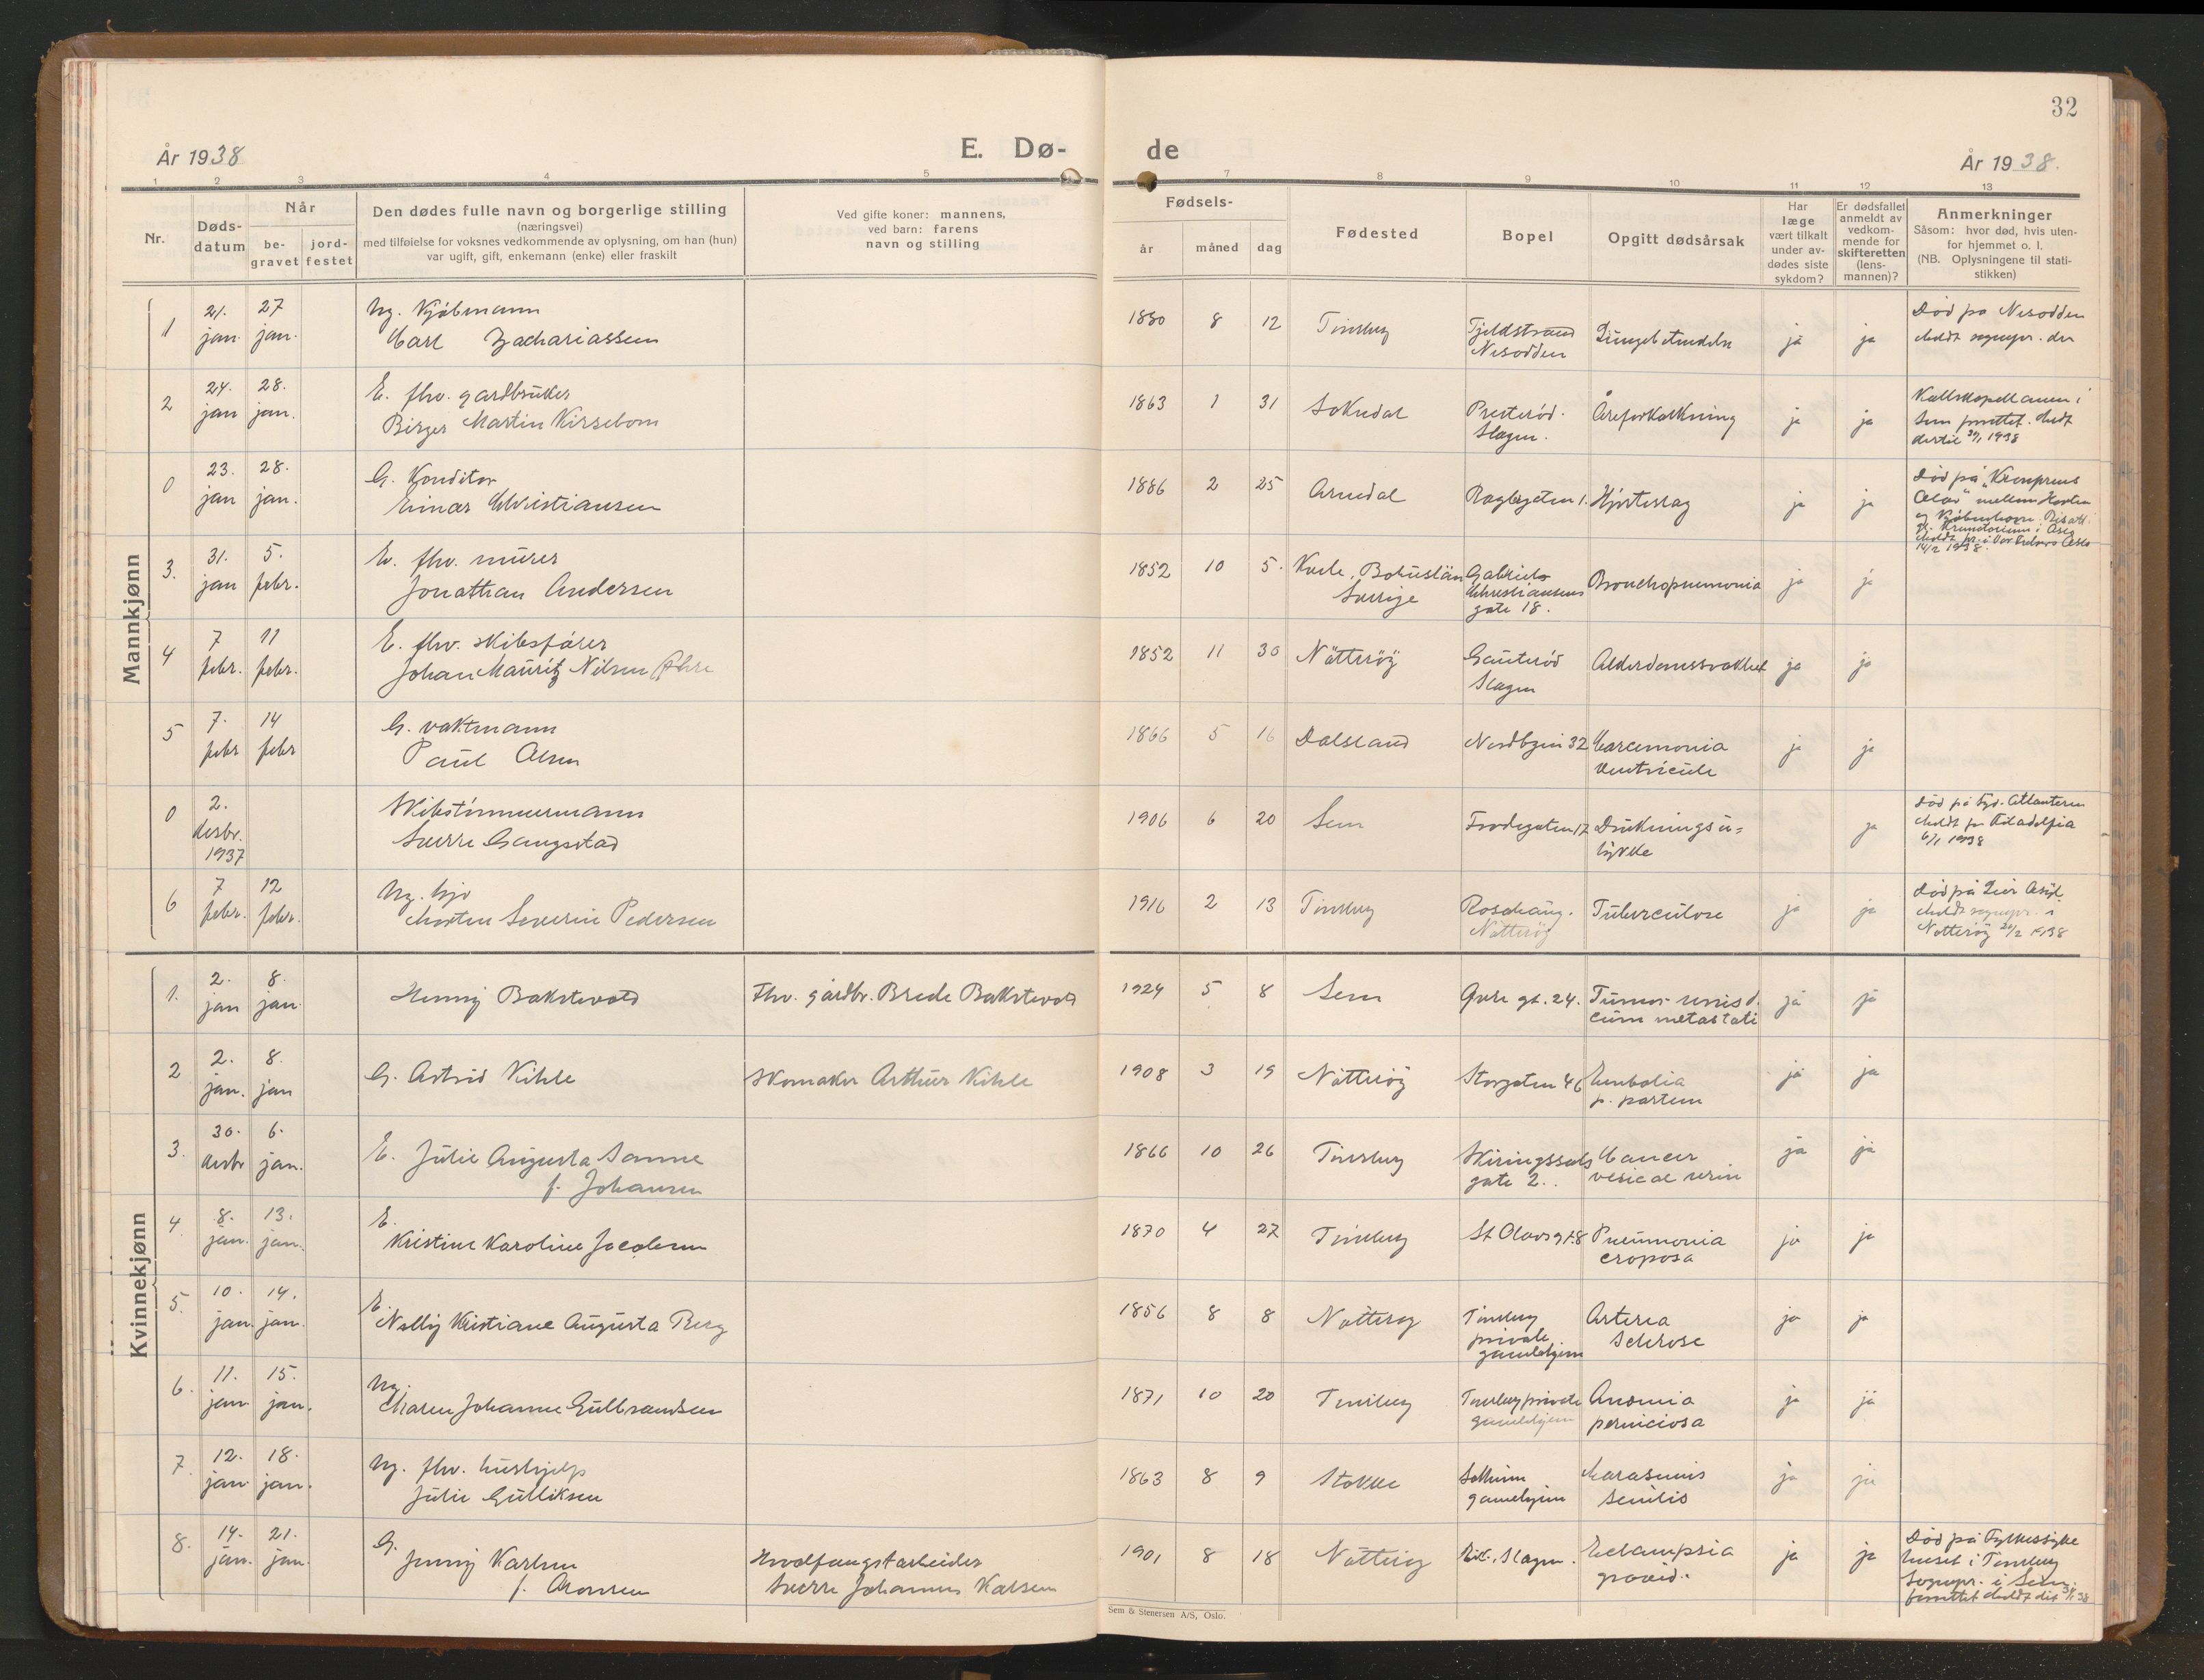 32
År 1938
E. Dø-
de
År 1938.
1 2 3 4 5 7 8 9 10 11 12 13
Nr.
Døds-
datum
Når
be-
gravet
jord-
festet
Den dødes fulle navn og borgerlige stilling
(næringsvei)
med tilføielse for voksnes vedkommende av oplysning, om han (hun)
var ugift, gift, enkemann (enke) eller fraskilt
Ved gifte koner: mannens,
ved barn: farens
navn og stilling
Fødsels-
år måned dag
Fødested
Bopel
Opgitt dødsårsak
Har
læge
vært tilkalt
under av-
dødes siste
sykdom?
Er dødsfallet
anmeldt av
vedkom-
mende for
skifteretten
(lens-
mannen)?
Anmerkninger
Såsom: hvor død, hvis uten-
for hjemmet o. l.
(NB. Oplysningene til stati-
stikken)
Mannkjønn
1
21. 27
jan. jan.
Ug. Kjøbmann
Carl Zachariassen
1880 8 12
Tønsberg
Fjeldstrand
Nesodden
Lungebetendelse
ja ja
Død på Nesodden
meldt sognepr. der
2
24. 28.
jan jan.
E. fhv. gardbruker
Birger Martin Kirsebom
1863 1 31
Sokndal
Presterød.
Slagen.
Åreforkalkning
ja ja
Kallskapellanen i
Sem forrettet. Meldt
dertil 30/1 1938
0
23. 28.
jan jan.
G. Konditor
Einar Christiansen
1886 2 25
Arendal
Hjerteslag
ja ja
Død på "Kronprins
Olav" mellem Horten
og Kjøbenhavn. Bisatt
Krematorium i Oslo
14/2 1938.
3.
31. 5.
jan febr.
E. fhv. murer
Jonathan Andersen
1852 10 5.
Bohuslän
Sverige
Gabriels
Christiansens
gate 18.
Bronchopneumonia
ja ja
4
7 11
febr. febr.
E. fhv. skibsfører
Johan Mauritz Nilsen
1852 11 30
Nötteröy
Gauterød
Slagen
Alderdomssvakhet
ja ja
5
7. 14
febr febr
G. vaktmann
Paul Olsen
1866 5 16
Dalsland
Nordbyen 32
Carcinomia
ventricule
ja ja
0
2.
desbr.
1937
Skibstømmermann
Sverre Gangstad
1906 6 20
Sem
Frodegaten 17
Drukningsu-
lykke
ja
Død på Syd-Atlanteren
meldt fr Filadelfia
6/1 1938
6
7 12
febr. febr.
Ug. byo
Morten Severin Pedersen
1916 2 13
Tønsberg
Rosahaug.
Nøtterøy
Tuberculose
ja ja
Død på Lier Asyl.
meldt sognepr. i
Nøtterøy 20/2 1938
Kvinnekjønn
1.
2. 8.
jan jan
Henny Bakstevold
Fhv. gårdbr. Brede Bakstevold
1924 5 8
Sem
gt. 24.
Tumor
cum metastati
ja ja
2
2. 8.
jan. jan
G. Astrid Kihle
Skomaker Arthur Kihle
1908 3 19
Nøtterøy
Storgaten 46
Embolia
p. partum
ja ja
3.
30. 6.
desbr jan.
E. Julie Augusta Sanne
f. Johansen
1866 10 26
Tønsberg
Skiringssals
gate 2..
Cancer
vesicae urin
ja ja
4
8. 13.
jan. jan.
E.
Kristine Karoline Jacobsen
1870 4 27
Tønsberg
St Olavs gt. 8
Pneumonia
croposa
ja ja
5.
10. 14.
jan. jan.
E.
Nelly Kristiane Augusta Berg
1856 8 8
Nøtterøy
Tønsberg
private
gamlehjem
Arteria
sclerose
ja ja
6.
11. 15.
jan. jan.
Ug.
Maren Johanne Gulbrandsen
1871 10 20
Tønsberg
Tønsberg private
gamlehjem
Anæmia
perniciosa
ja ja
7.
12. 18.
jan. jan.
Ug. fhv. hushjelp
Julie Gulliksen
1863 8 9
Stokke
Solheim
gamlehjem
Marasmus
senilis
ja ja
8.
14. 21.
jan. jan.
G.
Jenny Karlsen
f. Aronsen
Hvalfangstarbeider
Sverre Johannes Karlsen
1901 8 18
Nøtterøy
Eik. Slagen.
Eclampsia
gravid.
ja ja
Død på Fylkessyke
huset i Tønsberg
Sognepr. i Sem
forrettet meldt dit 31/1 38
Sem & Stenersen A/S, Oslo.